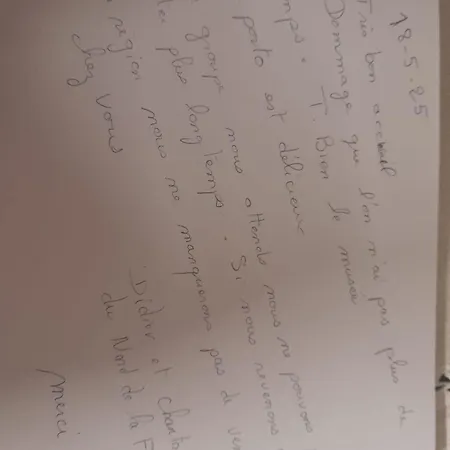 18-5-25
Très bon accueil
Dommage que l'on n'ai pas plus de
mps. T. Bien le musée
porto est délicieux
groupe nous attends nous ne pouvons
plus longtemps. Si nous revenons
région nous ne manquerons pas de ven
chez vous
Didier et Chanta
du Nord de la F
Merci